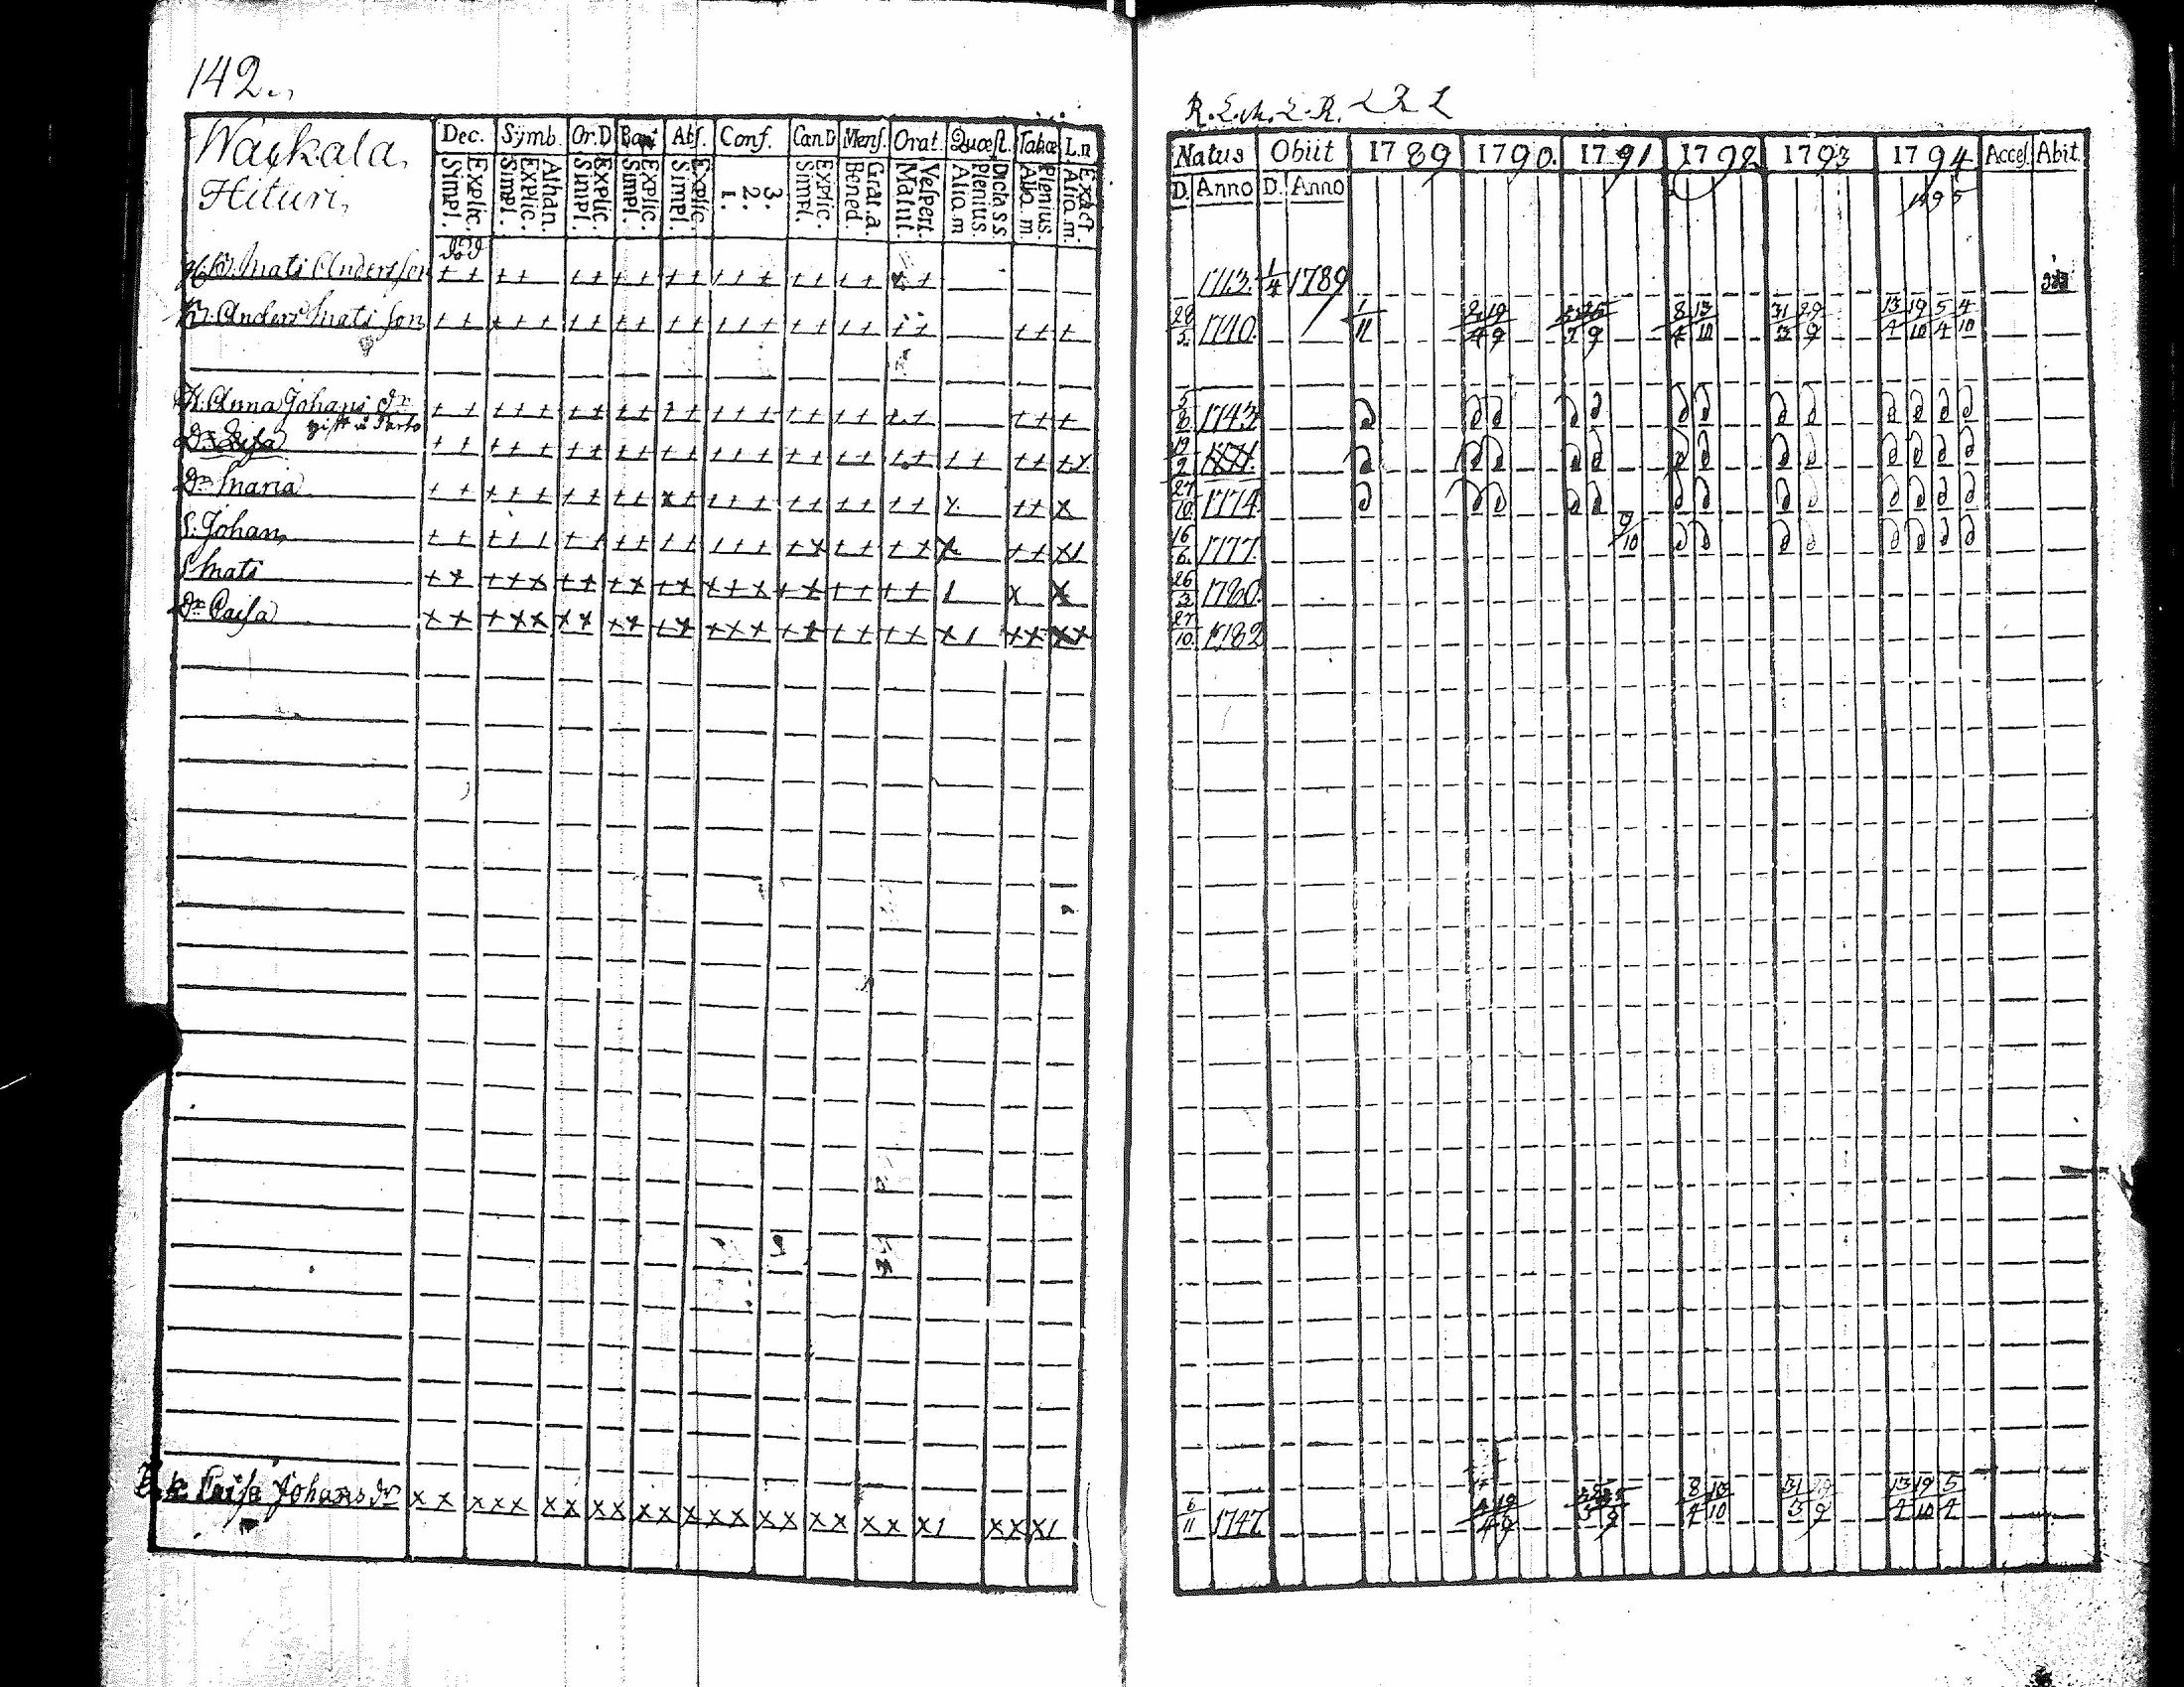 142.
Waikala,
Hituri,
Dec. Symb. Or.D Bapt Abs. Conf. Can.D Mens. Orat. Quæst. Tabæ L.n
Explic. Simpl. Athan. Explic. Simpl. Explic. Simpl. Explic. Simpl. Explic. Simpl. 3. 2. 1. Explic. Simpl. Grat.a. Bened. Vespert. Matut. Dicta s.s. Plenius. Aliq.m Plenius. Aliq.m. Exact. Aliq.m.
Mati Andersson
Anders Matisson
H. Anna Johans dr
gift i
Dr. Lisa
Dr Maria
S. Johan,
S Mati
Dr Caisa
Caisa Johans dr
R. L. M. L. R. L R L
Natus Obiit 1789 1790. 1791 1792 1793 1794 Acces. Abit.
D. Anno D. Anno 1795
1713. 1/4 1789
28/3. 1740. 1/11 8/4 13/10 31/3 29/9 13/4 19/10 5/4 4/10
5/6. 1743
19/2
27/10. 1774
16/6. 1777. 9/10
26/3 1780.
27/10. 1782
6/11 1747 8/4 13/10 31/3 29/9 13/4 19/10 5/4